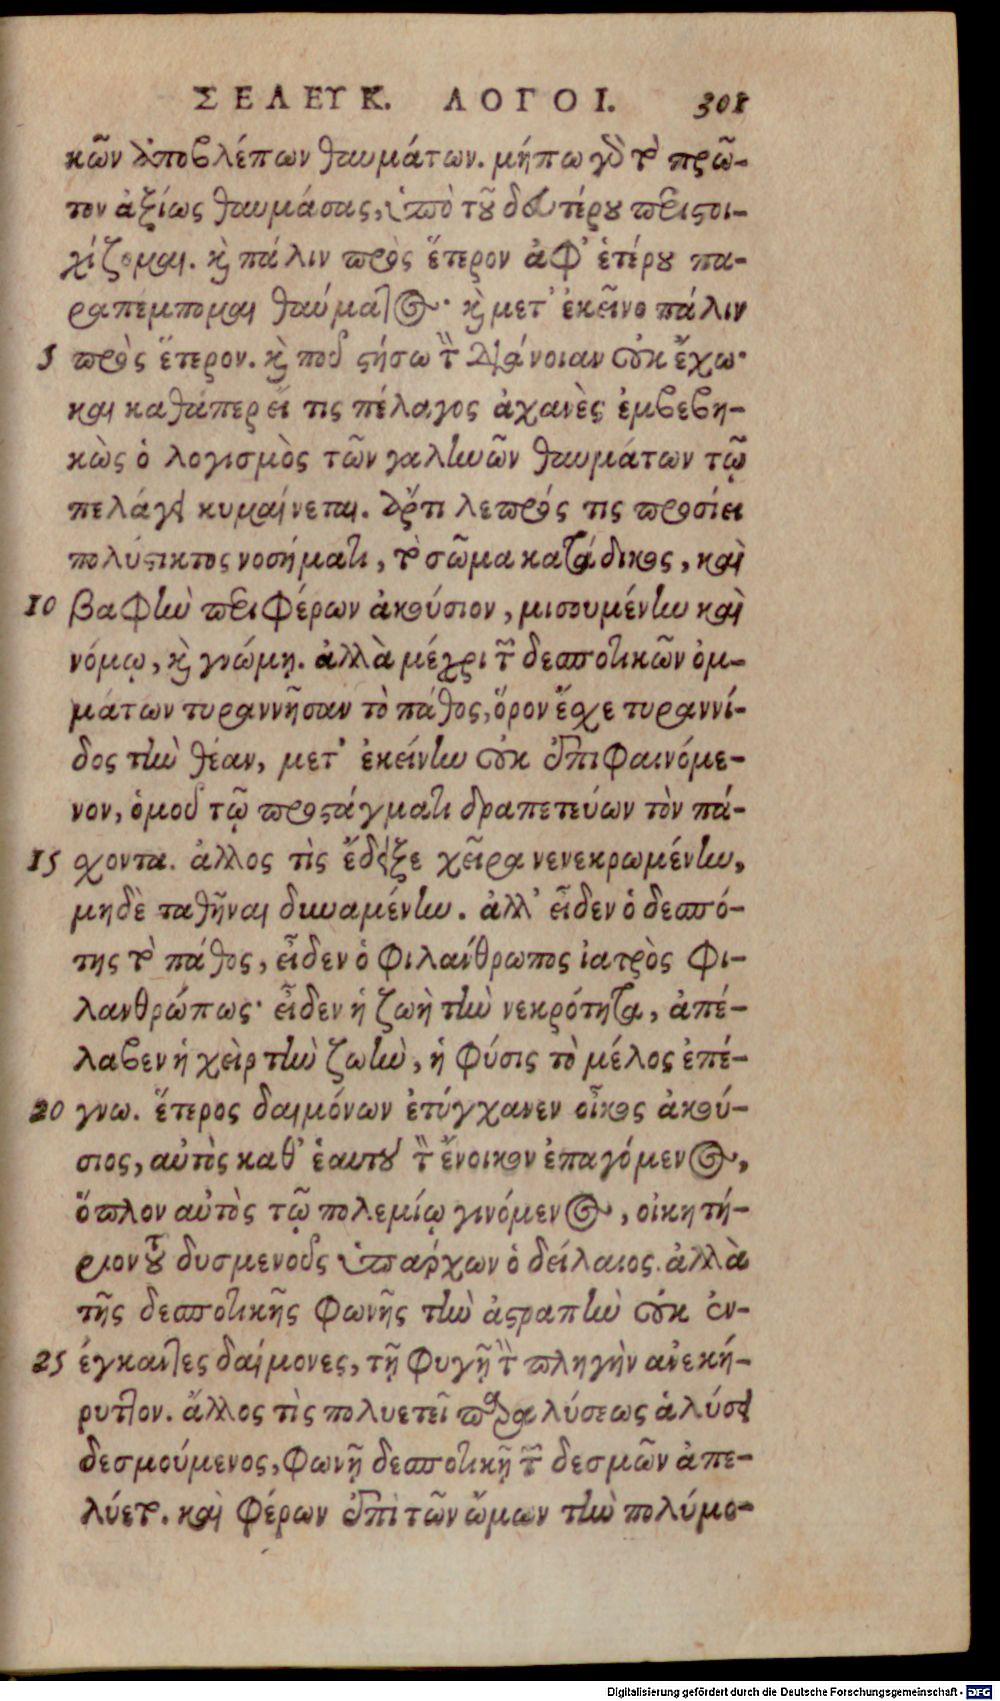 ΣΕΛΕΥΚ. ΛΟΓΟΙ. 301
κῶν ἀποβλέπων θαυμάτων. μήπω γὰρ τὸ πρῶ-
τον ἀξίως θαυμάσας, ὑπὸ τοῦ δευτέρου περιστοι-
χίζομαι. καὶ πάλιν πρὸς ἕτερον ἀφ' ἑτέρου πα-
ραπέμπομαι θαύματος· καὶ μετ' ἐκεῖνο πάλιν
5 πρὸς ἕτερον. καὶ ποῦ στήσω τὴν διάνοιαν οὐκ ἔχω·
καὶ καθάπερ εἴ τις πέλαγος ἀχανὲς ἐμβεβη-
κὼς ὁ λογισμὸς τῶν γαλινῶν θαυμάτων τῷ
πελάγει κυμαίνεται. ἄρτι λεπρός τις προσίει
πολύστικτος νοσήματι, τὸ σῶμα κατάδικος, καὶ
10 βαφὴν περιφέρων ἀκούσιον, μισουμένην καὶ
νόμῳ, καὶ γνώμῃ. ἀλλὰ μέχρι τῶν δεσποτικῶν ὀμ-
μάτων τυραννῆσαν τὸ πάθος, ὅρον ἔσχε τυραννί-
δος τὴν θέαν, μετ' ἐκείνην οὐκ ἐπιφαινόμε-
νον, ὁμοῦ τῷ προστάγματι δραπετεύων τὸν πά-
15 σχοντα. ἄλλος τὶς ἔδειξε χεῖρα νενεκρωμένην,
μηδὲ ταθῆναι δυναμένην. ἀλλ' εἶδεν ὁ δεσπό-
της τὸ πάθος, εἶδεν ὁ φιλάνθρωπος ἰατρὸς φι-
λανθρώπως· εἶδεν ἡ ζωὴ τὴν νεκρότητα, ἀπέ-
λαβεν ἡ χεὶρ τὴν ζωὴν, ἡ φύσις τὸ μέλος ἐπέ-
20 γνω. ἕτερος δαιμόνων ἐτύγχανεν οἶκος ἀκού-
σιος, αὐτὸς καθ' ἑαυτοῦ τὸν ἔνοικον ἐπαγόμενος,
ὅπλον αὐτὸς τῷ πολεμίῳ γινόμενος, οἰκητή-
ριον τοῦ δυσμενοῦς ὑπάρχων ὁ δείλαιος. ἀλλὰ
τῆς δεσποτικῆς φωνῆς τὴν ἀστραπὴν οὐκ ἐν-
25 έγκαντες δαίμονες, τῇ φυγῇ τὴν πληγὴν ἀνεκή-
ρυττον. ἄλλος τὶς πολυετεῖ παραλύσεως ἁλύσει
δεσμούμενος, φωνῇ δεσποτικῇ τῶν δεσμῶν ἀπε-
λύετο. καὶ φέρων ἐπὶ τῶν ὤμων τὴν πολύμο-
Digitalisierung gefördert durch die Deutsche Forschungsgemeinschaft - DFG